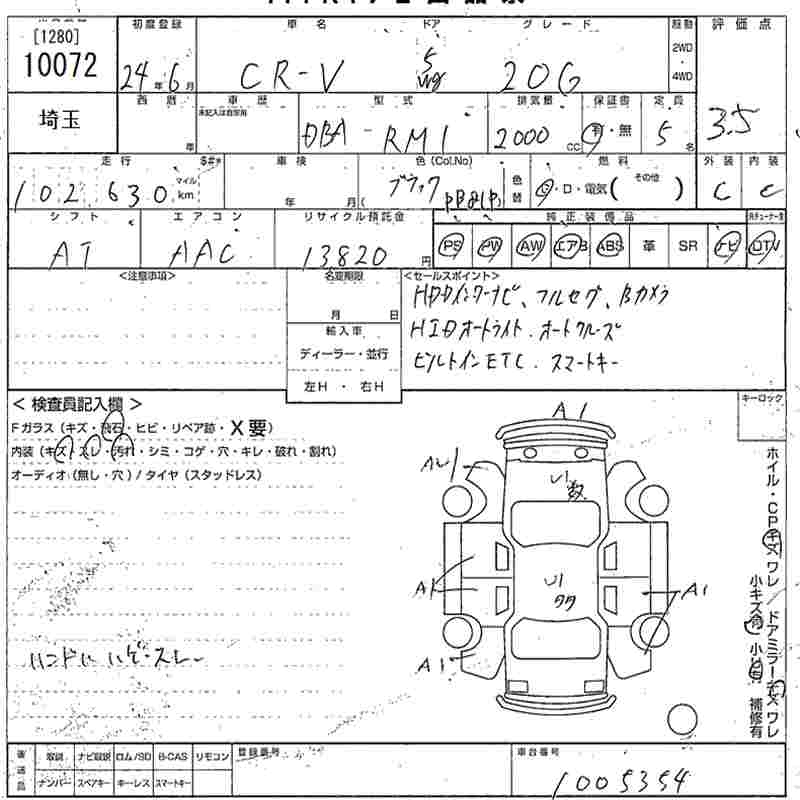 [1280]
10072
埼玉
初度登録 車名 ドア グレード 駆動 評価点
24年6月 CR-V 5 20G 2WD・4WD 3.5
西暦 車歴 型式 排気量 保証書 定員
未記入は自家用
年 DBA-RM1 2000CC 有・無 5名
走行 $#* 車検 色(Col.No) 燃料 外装 内装
102,630 マイル km 年 月 ブラック 色替 G・D・電気( その他 ) C C
シフト エアコン リサイクル預託金 純正装備品
AT AAC 13820円 PS PW AW エアB ABS 革 SR ナビ DTV
<注意事項> 名変期限 <セールスポイント>
HDDインターナビ、フルセグ、Bカメラ
月 日
輸入車
HIDオートライト.オートクルーズ
ディーラー・並行
ビルトインETC.スマートキー
左H・右H
<検査員記入欄> キーロック
Fガラス(キズ・飛石・ヒビ・リペア跡・X要)
内装(キズ・スレ・汚れ・シミ・コゲ・穴・キレ・破れ・割れ)
オーディオ(無し・穴)/タイヤ(スタッドレス)
A1
U1
A1
U1
A1
A1
ホイル・CPキズワレ ドアミラーキズワレ
小キズ有 小凹有 補修有
ハンドル ハゲ・スレ
後送品 取説 ナビ取説 ロム/SD B-CAS リモコン 登録番号 車台番号
ナンバー スペアキー キーレス スマートキー 1005354